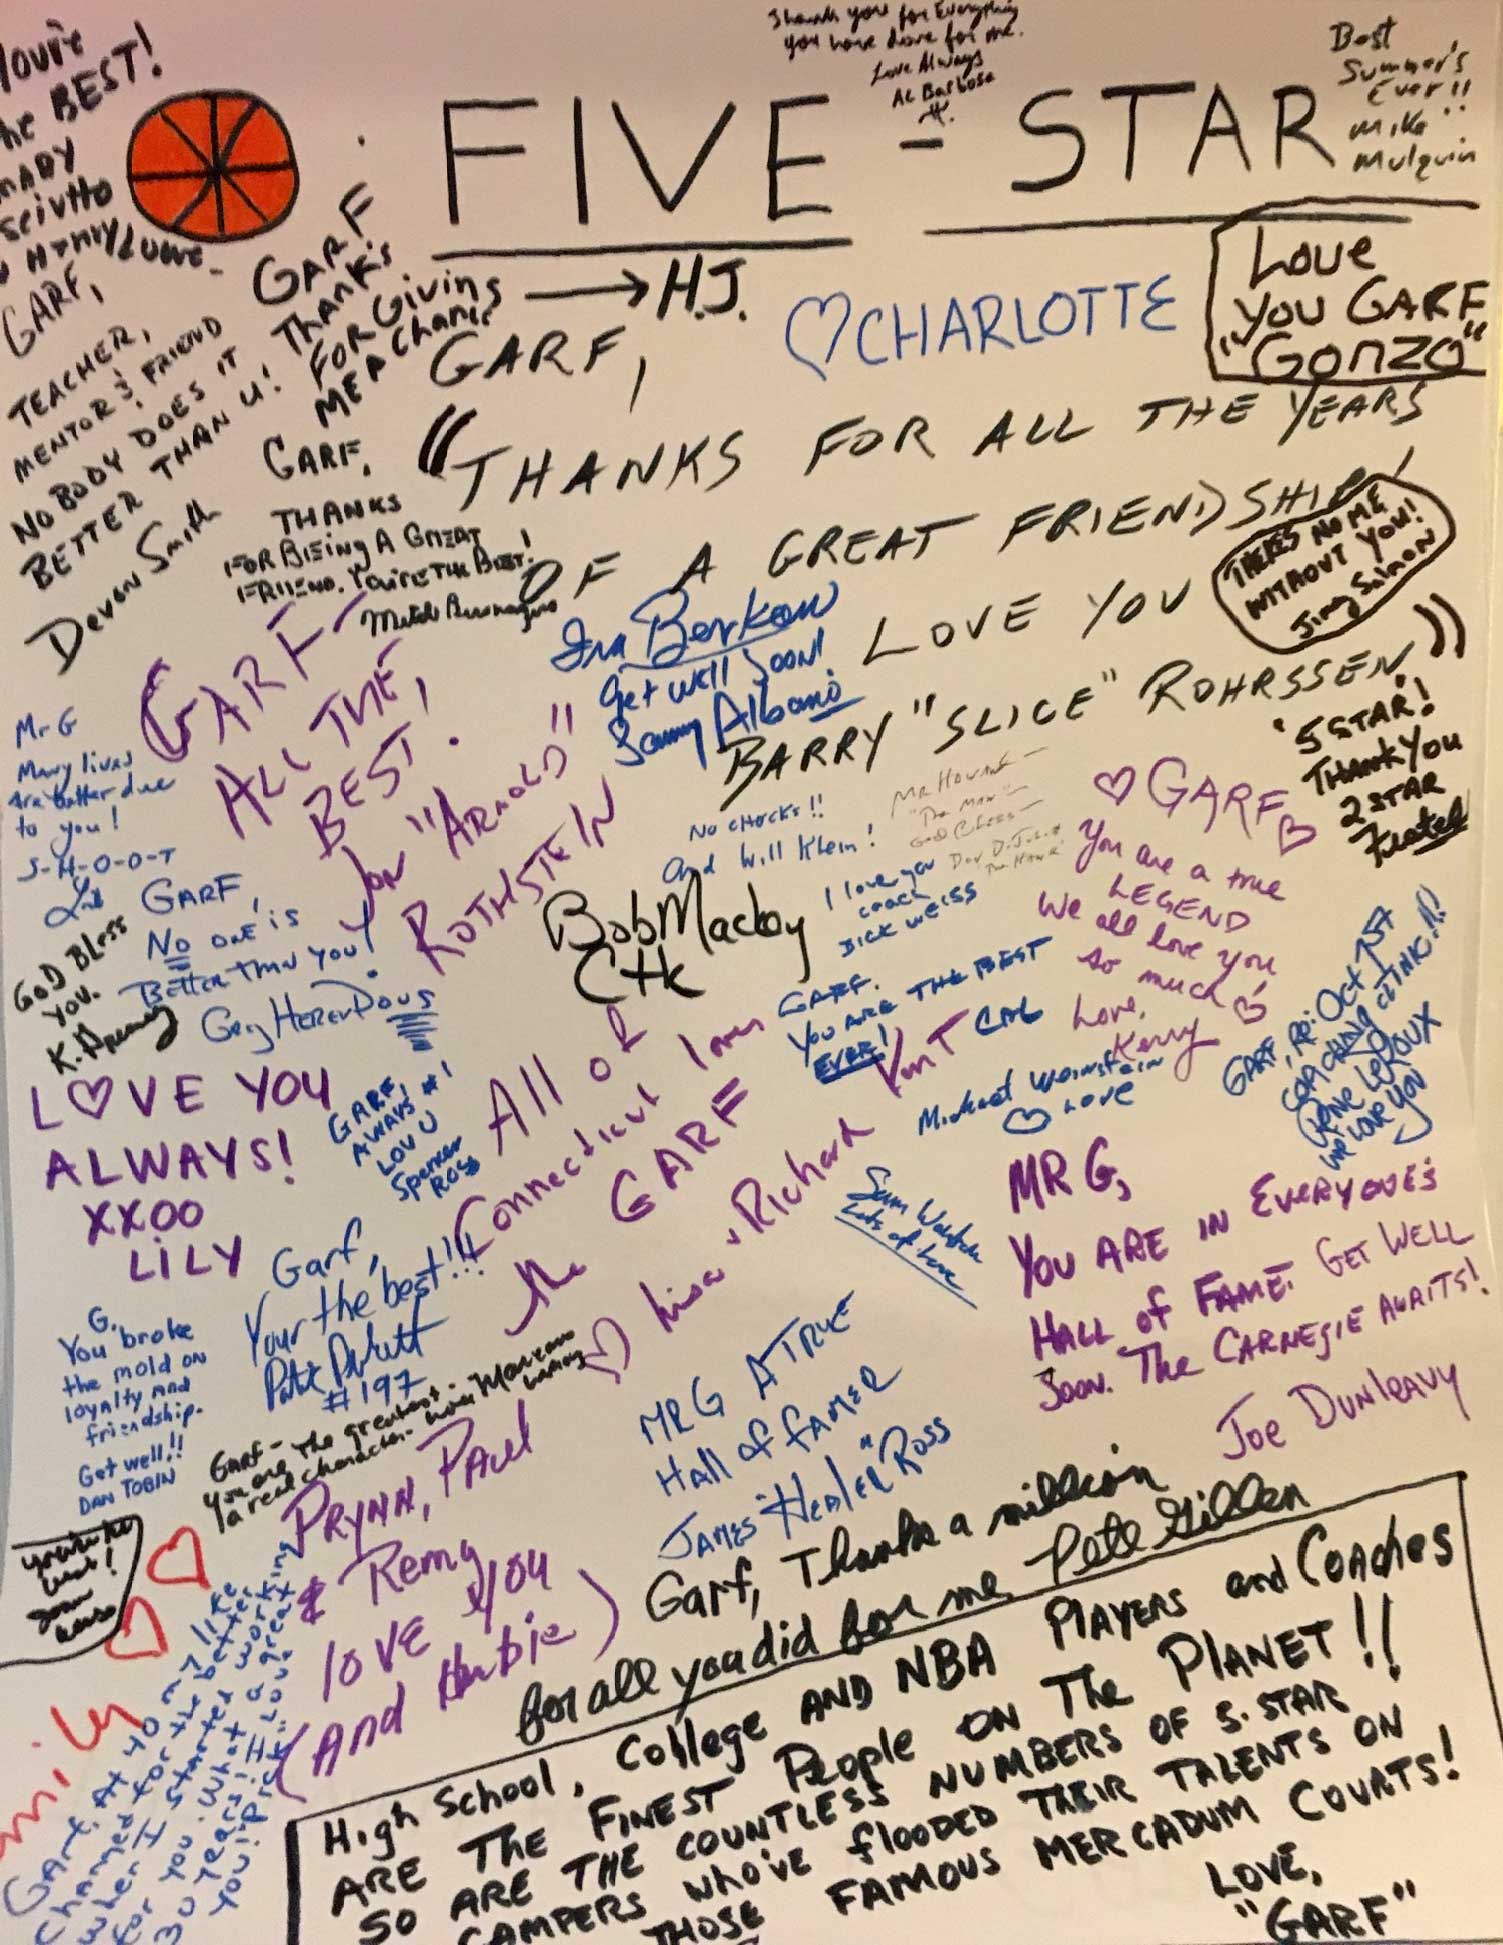 Thank you for Everything
you have done for me.
Love Always
Al Barbosa
Best
Summer's
Ever!!
Mike
Mulquin
You're
the BEST!
FIVE - STAR
GARF,
TEACHER,
MENTOR & FRIEND
NOBODY DOES IT
BETTER THAN U!
Devon Smith
GARF
THANK'S
FOR GIVING
ME A Chance
H.J.
♡CHARLOTTE
Love
You GARF
"GONZO"
GARF,
"THANKS FOR ALL THE YEARS
OF A GREAT FRIENDSHIP
LOVE YOU
BARRY "SLICE" ROHRSSEN"
THERE'S NO ME
WITHOUT YOU!
Jim Salmon
GARF,
THANKS
FOR BEING A GREAT
FRIEND. YOU'RE THE BEST!
Ira Berkow
Get well Soon!
Sonny Albano
'5 STAR'!
THANK YOU
2 STAR
GARF-
ALL THE
BEST!
Jon "ARNOLD"
ROTHSTEIN
Mr G
Many lives
are better due
to you!
S-H-O-O-T
GOD BLESS
YOU.
GARF,
NO one is
Better than you!
No chocks!!
And Will Klein!
Bob Mackey
CTK
I love you
coach
DICK WEISS
♡ GARF ♡
You are a true
LEGEND
We all love you
so much
Love,
Kerry ♡
GARF.
YOU ARE THE BEST
EVER!
Michael Weinstein
♡ Love
COACHING CLINIC!!!
WE LOVE YOU
L♡VE YOU
ALWAYS!
XXOO
LILY
GARF,
ALWAYS #1
LOV U
Spencer
ROSS
All of
Connecticut loves
the GARF
♡ Lisa & Richard
Lots of Love
MR G,
YOU ARE IN EVERYONE'S
HALL of FAME. GET WELL
Soon. The CARNEGIE AWAITS!
Joe Dunleavy
Garf,
Your the best!!!
#197
G.
You broke
the mold on
loyalty and
friendship.
Get well!!
DAN TOBIN
GARF-
You are the greatest-
a real character-
MR G A TRUE
Hall of FAMER
JAMES "HEALER" ROSS
PRYNN, PAUL
& Remy
love you
(And Herbie)
Garf, Thanks a million
for all you did for me Pete Gillen
Garf. At 40 my life
changed for the better
when I started working
for you. What a great
30 years!! I Love
you!
High School, College AND NBA PLAYERS and COACHES
ARE THE FINEST PEOPLE ON THE PLANET!!
SO ARE THE COUNTLESS NUMBERS OF 5-STAR
CAMPERS WHO'VE FLOODED THEIR TALENTS ON
THOSE FAMOUS MERCADUM COURTS!
LOVE,
"GARF"